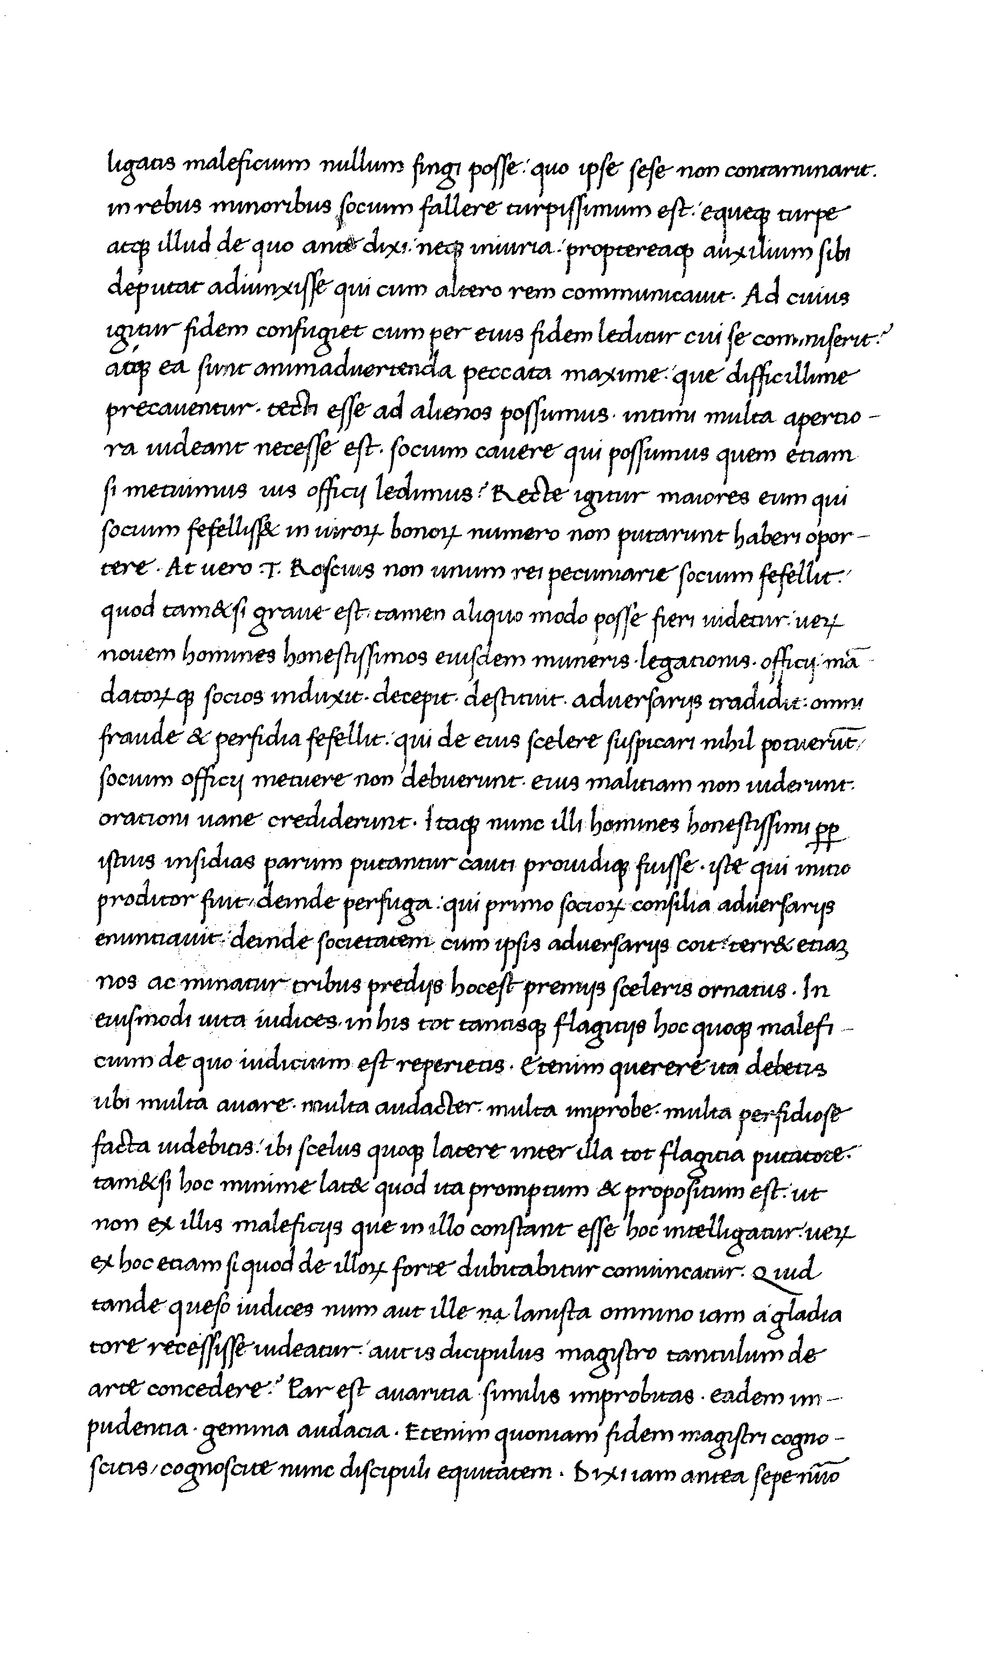 ligatis maleficium nullum fingi posse: quo ipse sese non contaminarit.
in rebus minoribus socium fallere turpissimum est: equeqꝫ turpe
atqꝫ illud de quo ante dixi: neqꝫ iniuria: propterea qꝫ auxilium sibi
deputat adiunxisse qui cum altero rem communicauit. Ad cuius
igitur fidem confugiet cum per eius fidem leditur cui se commiserit?
atqꝫ ea sunt animaduertenda peccata maxime: que difficillime
precauentur. tecti esse ad alienos possumus. intimi multa apertio-
ra uideant necesse est. socium cavere qui possumus quem etiam
si metuimus ius officij ledimus? Recte igitur maiores eum qui
socium fefelliss& in uiroꝝ bonoꝝ numero non putarunt haberi opor-
tere. At uero .T. Roscius non unum rei pecuniarie socium fefellit:
quod tam&si graue est: tamen aliquo modo posse fieri uidetur: ueꝝ
nouem homines honestissimos eiusdem muneris. legationis. officij: mā
datoꝝqꝫ socios induxit. decepit. destituit. adversarijs tradidit: omni
fraude & perfidia fefellit: qui de eius scelere suspicari nihil potuerūt/
socium officij metuere non debuerunt. eius malitiam non uiderunt.
orationi uane crediderunt. Itaqꝫ nunc illi homines honestissimi ꝓꝑ
istius insidias parum putantur cauti prouidiqꝫ fuisse. iste qui initio
proditor fuit/ deinde perfuga: qui primo socioꝝ consilia adversarijs
enuntiauit: deinde societatem cum ipsis adversarijs coit: terr& etiaꝫ
nos ac minatur tribus predijs hocest premijs sceleris ornatus. In
eiusmodi uita iudices. in his tot tantisqꝫ flagitijs hoc quoqꝫ malefi-
cium de quo iudicium est reperietis. Etenim querere ita debetis
ubi multa auare. multa audacter. multa improbe. multa perfidiose
facta uidebitis: ibi scelus quoqꝫ latere inter illa tot flagitia putatote.
tam&si hoc minime lat& quod ita promptum & propositum est: ut
non ex illis maleficijs que in illo constant esse hoc intelligatur: ueꝝ
ex hoc etiam si quod de illoꝝ forte dubitabitur convincatur. Quid
tande queso iudices num aut ille lanista omnino iam a gladia
tore recessisse uideatur: aut is dicipulus magistro tantulum de
arte concedere? Par est auaritia similis improbitas. eadem im-
pudentia. gemina audacia. Etenim quoniam fidem magistri cogno-
scitis/ cognoscite nunc discipuli equitatem. Dixi iam antea sepe